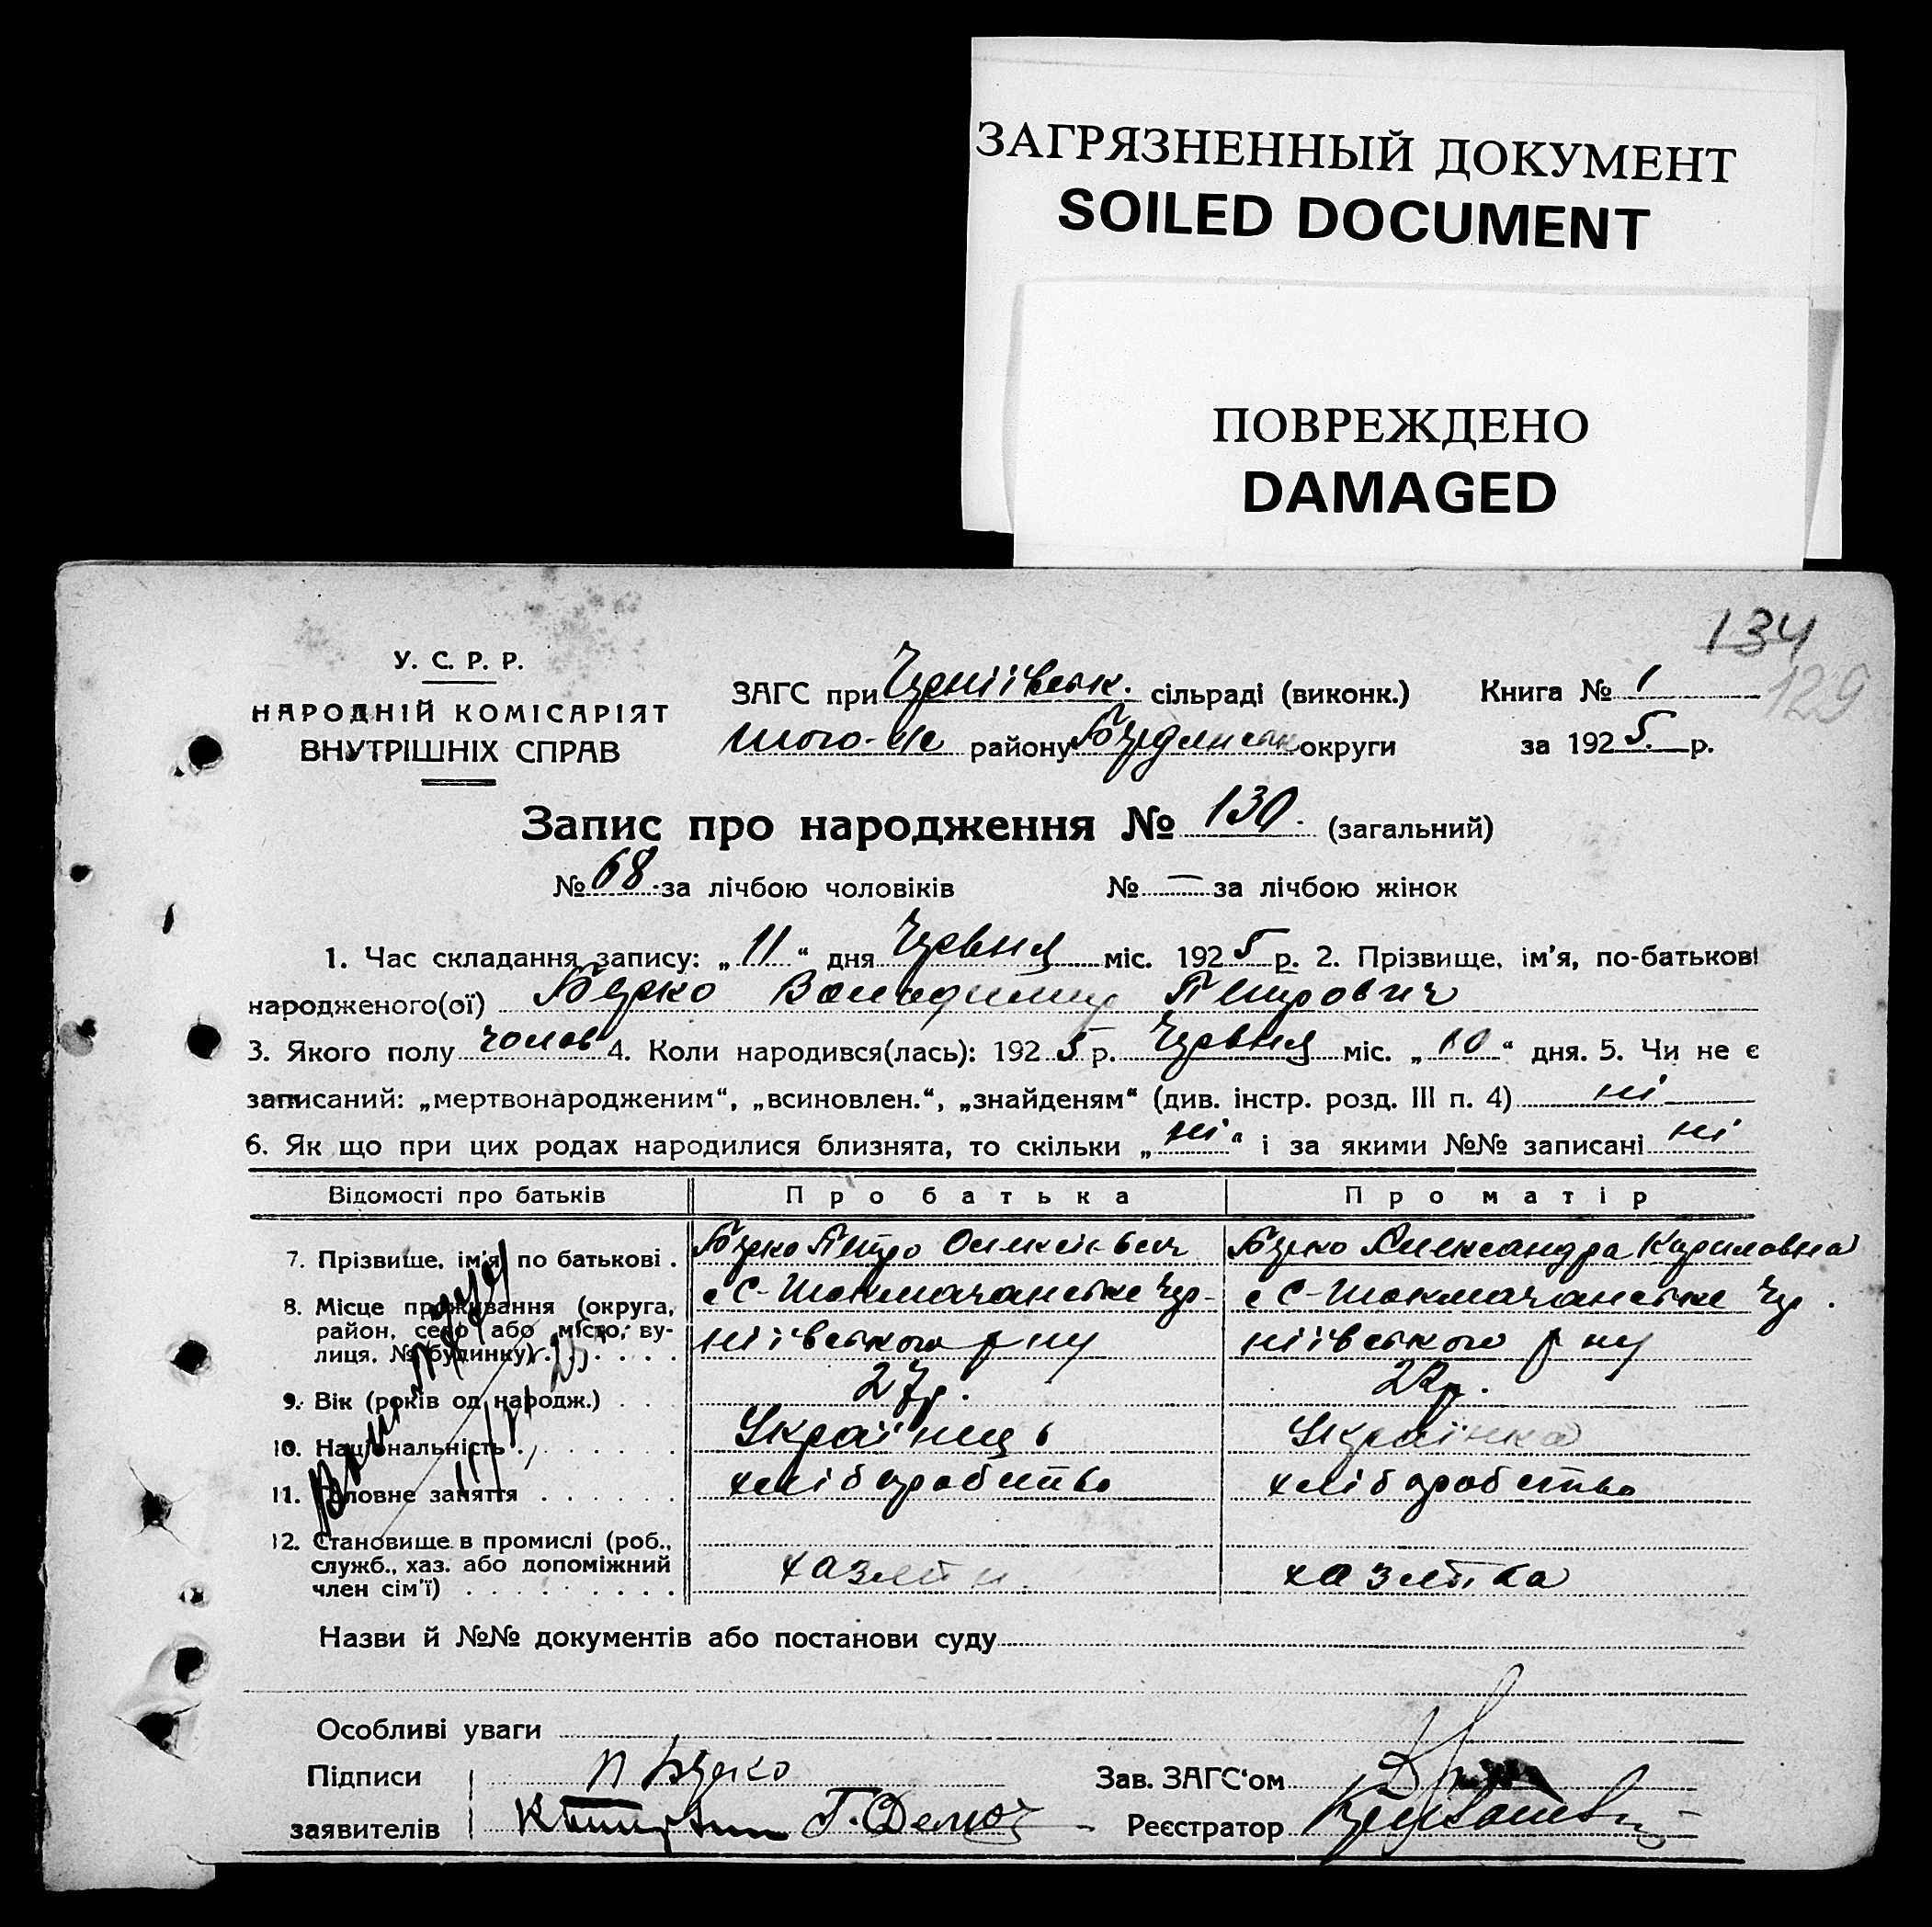 ЗАГРЯЗНЕННЫЙ ДОКУМЕНТ
SOILED DOCUMENT
ПОВРЕЖДЕНО
DAMAGED
134
129
У. С. Р. Р.
НАРОДНІЙ КОМІСАРІЯТ
ВНУТРІШНІХ СПРАВ
ЗАГС при Черніївськ. сільраді (виконк.) Книга № 1
того-же району Бердянськ округи за 1925 р.
Запис про народження № 130. (загальний)
№ 68. за лічбою чоловіків № — за лічбою жінок
1. Час складання запису: „11“ дня Червня міс. 1925 р. 2. Прізвище, ім'я, по-батькові
народженого(ої) Берко Володимир Петрович
3. Якого полу чолов 4. Коли народився(лась): 1925 р. Червня міс. „10“ дня. 5. Чи не є
записаний: „мертвонародженим“, „всиновлен.“, „знайденям“ (див. інстр. розд. III п. 4) ні
6. Як що при цих родах народилися близнята, то скільки „ні“ і за якими №№ записані ні
Відомості про батьків Про батька Про матір
7. Прізвище, ім'я, по батькові . Берко Петро Олексієвич Берко Александра Кириловна
8. Місце проживання (округа, с С-Токмачанське Чер- с С-Токмачанське Чер.
район, село або місто, ву- ніївського р ну ніївського р ну
лиця, № будинку) . . . . .
9. Вік (років од народж.) . . . 27 р. 22 р.
10. Національність . . . . . . Українець Українка
11. Головне заняття . . . . . хліборобство хліборобство
12. Становище в промислі (роб.,
служб., хаз. або допоміжний хазяїн хазяйка
член сім'ї) . . . . . . . . .
Назви й №№ документів або постанови суду
Особливі уваги
Підписи П Берко Зав. ЗАГС'ом
заявителів Реєстратор